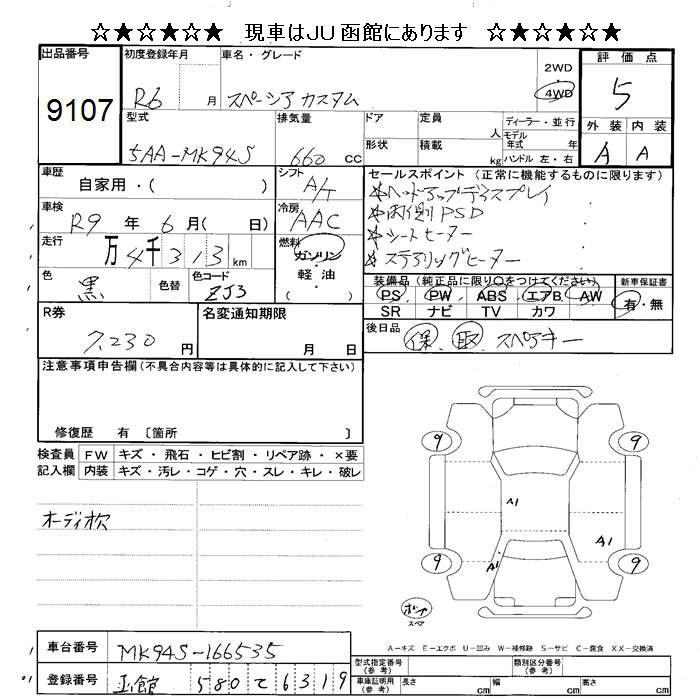 ☆★☆★☆★ 現車はJU函館にあります ☆★☆★☆★
出品番号
9107
初度登録年月
R6 月
車名・グレード
スペーシア カスタム
2WD
4WD
評価点
5
外装 内装
A A
型式
5AA-MK94S
排気量
660 CC
ドア
定員 人
形状
積載 kg
ディーラー・並行
モデル年式 年
ハンドル 左・右
車歴
自家用・( )
シフト
A/T
車検
R9 年 6 月( 日)
冷房
AAC
走行
万 4千 3 1 3 km
燃料
ガソリン
軽油
( )
色
黒
色替
色コード
ZJ3
セールスポイント (正常に機能するものに限ります)
☆ヘッドアップディスプレイ
☆両側PSD
☆シートヒーター
☆ステアリングヒーター
装備品 (純正品に限り○をつけてください)
PS PW ABS エアB AW
SR ナビ TV カワ
新車保証書
有・無
R券
7,230 円
名変通知期限
月 日
後日品
保 取 スペアキー
注意事項申告欄(不具合内容等は具体的に記入して下さい)
修復歴 有 〔箇所 〕
検査員記入欄
FW キズ・飛石・ヒビ割・リペア跡・×要
内装 キズ・汚レ・コゲ・穴・スレ・キレ・破レ
オーディオ欠
9 9
A1
A1
9 9
A1
スペア
A-キズ E-エクボ U-凹み W-補修跡 S-サビ C-腐食 XX-交換済
車台番号
MK94S-166535
登録番号
函館 580 て 6319
型式指定番号(参考)
類別区分番号(参考)
車庫証明用(参考)
長さ cm 幅 cm 高さ cm